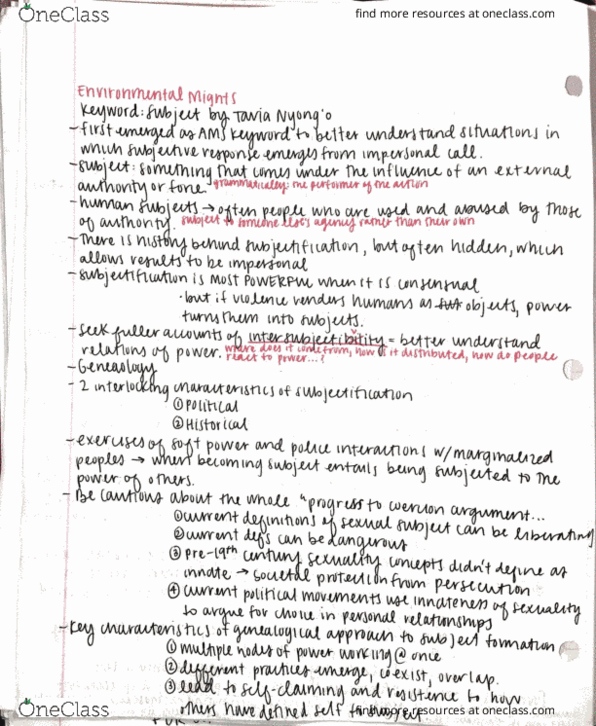 OneClass
find more resources at oneclass.com
Environmental Mights
Keyword: Subject by Tavia Nyong'o
- first emerged as AMS keyword to better understand situations in
which subjective response emerges from impersonal call.
- subject: something that comes under the influence of an external
authority or force grammatically: the performer of the action
- human subjects → often people who are used and abused by those
of authority. subject to someone else's agency rather than their own
- There is history behind subjectification, but often hidden, which
allows results to be impersonal
- subjectification is MOST POWERFUL when it is consensual
• but if violence renders humans as objects, power
turns them into subjects.
- seek fuller accounts of intersubjectibility = better understand
relations of power. where does it come from, how is it distributed, how do people
react to power...?
- Geneaology
- 2 interlocking characteristics of subjectification
① Political
② Historical
- exercises of soft power and police interactions w/ marginalized
peoples → when becoming subject entails being subjected to the
power of others.
- Be cautious about the whole "progress to coercion argument...
① current definitions of sexual subject can be liberating
② current defs can be dangerous
③ Pre-19th century sexuality concepts didn't define as
innate → societal protection from persecution
④ current political movements use innateness of sexuality
to argue for choice in personal relationships
- Key characteristics of genealogical approach to subject formation
① multiple nodes of power working @ once
② different practices emerge, coexist, overlap.
③ lead to self-claiming and resistence to how
others have defined self
OneClass
find more resources at oneclass.com